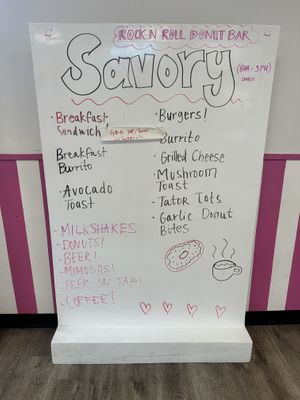 ROCK N ROLL DONUT BAR
Savory
(8AM - 3PM)
· Breakfast
Sandwich!
Breakfast
Burrito
· Avocado
Toast
· Burgers!
Burrito
· Grilled Cheese
· Mushroom
Toast
· Tator Tots
· Garlic Donut
Bites
- MILKSHAKES
- DONUTS!
- BEER!
- MIMOSAS!
- BEER ON TAP!
- COFFEE!